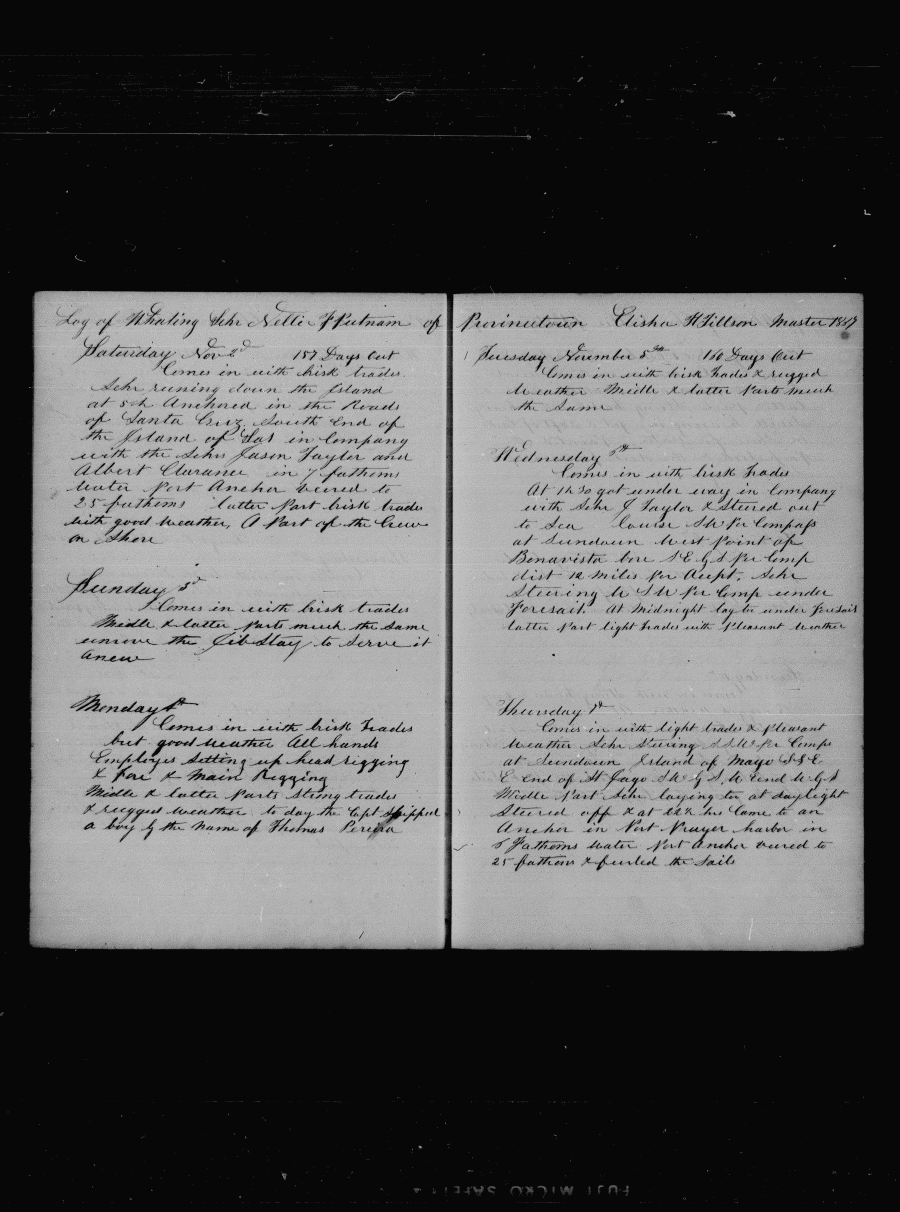 Log of Whaling Schr Nellie S Putnam of
Saturday Nov 2d 157 Days Out
Comes in with brisk trades.
Schr runing down the Island
at 5 h Anchored in the Roads
of Santa Cruz South End of
the Island of Sal in Company
with the Schrs Jason Taylor and
Albert Clarance in 7 fathoms
water Port Anchor veered to
25 fathoms latter Part brisk trades
with good weather, A Part of the Crew
on Shore
Sunday 3d
Comes in with brisk trades
Midle & latter Parts much the same
unrove the Jib Stay to Serve it
anew
Monday 4th
Comes in with brisk trades
but good weather All hands
Employes Setting up head rigging
& fore & Main Rigging
Midle & latter Parts strong trades
& rugged weather to day the Capt Shipped
a boy by the name of Thomas Pereira
Provincetown Elisha H Tillson Master 1867
Tuesday November 5th 160 Days Out
Comes in with brisk trades & rugged
weather Midle & latter Parts much
the Same
Wednesday 6th
Comes in with brisk trades
At 1h 30 got under way in Company
with Schr J Taylor & Steered out
to Sea Course SW Per Compass
at Sundown West Point of
Bonavista bore S E by S Per Comp
dist 12 Miles Per Acupt. Schr
Steering W SW Per Comp under
Foresail. At Midnight lay to under foresail
latter Part light trades with Pleasant weather
Thursday 7th
Comes in with light trades & Pleasant
weather Schr Steering SSW Per Comps
at Sundown Island of Mayo SSE
E End of St Jago SW by S, W End W by S
Midle Part Schr laying to at daylight
Steered off & at hrs Came to an
Anchor in Port Prayer harbor in
6 Fathoms water Port Anchor veered to
25 fathoms & furled the Sails
FUJI MICRO SAFETY